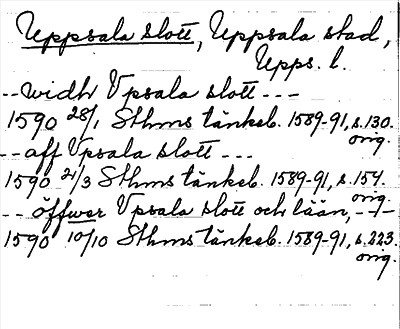 Uppsala slott, Uppsala stad,
Upps. l.
--widh Vpsala slott ---
1590 28/1 Sthms tänkeb. 1589-91, s. 130.
orig.
--aff Vpsala slott ---
1590 21/3 Sthms tänkeb. 1589-91, s. 154.
orig.
-- öffwer Vpsala slott och lään, -–-
1590 10/10 Sthms tänkeb. 1589-91, s. 223.
orig.